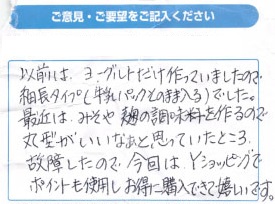 ご意見・ご要望をご記入ください
以前は、ヨーグルトだけ作っていましたので
細長タイプ(牛乳パックそのまま入る)でした。
最近は、みそや麹の調味料を作るので
丸型がいいなあと思っていたところ
故障したので、今回は、Yショッピングで
ポイントも使用しお得に購入できて嬉しいです。